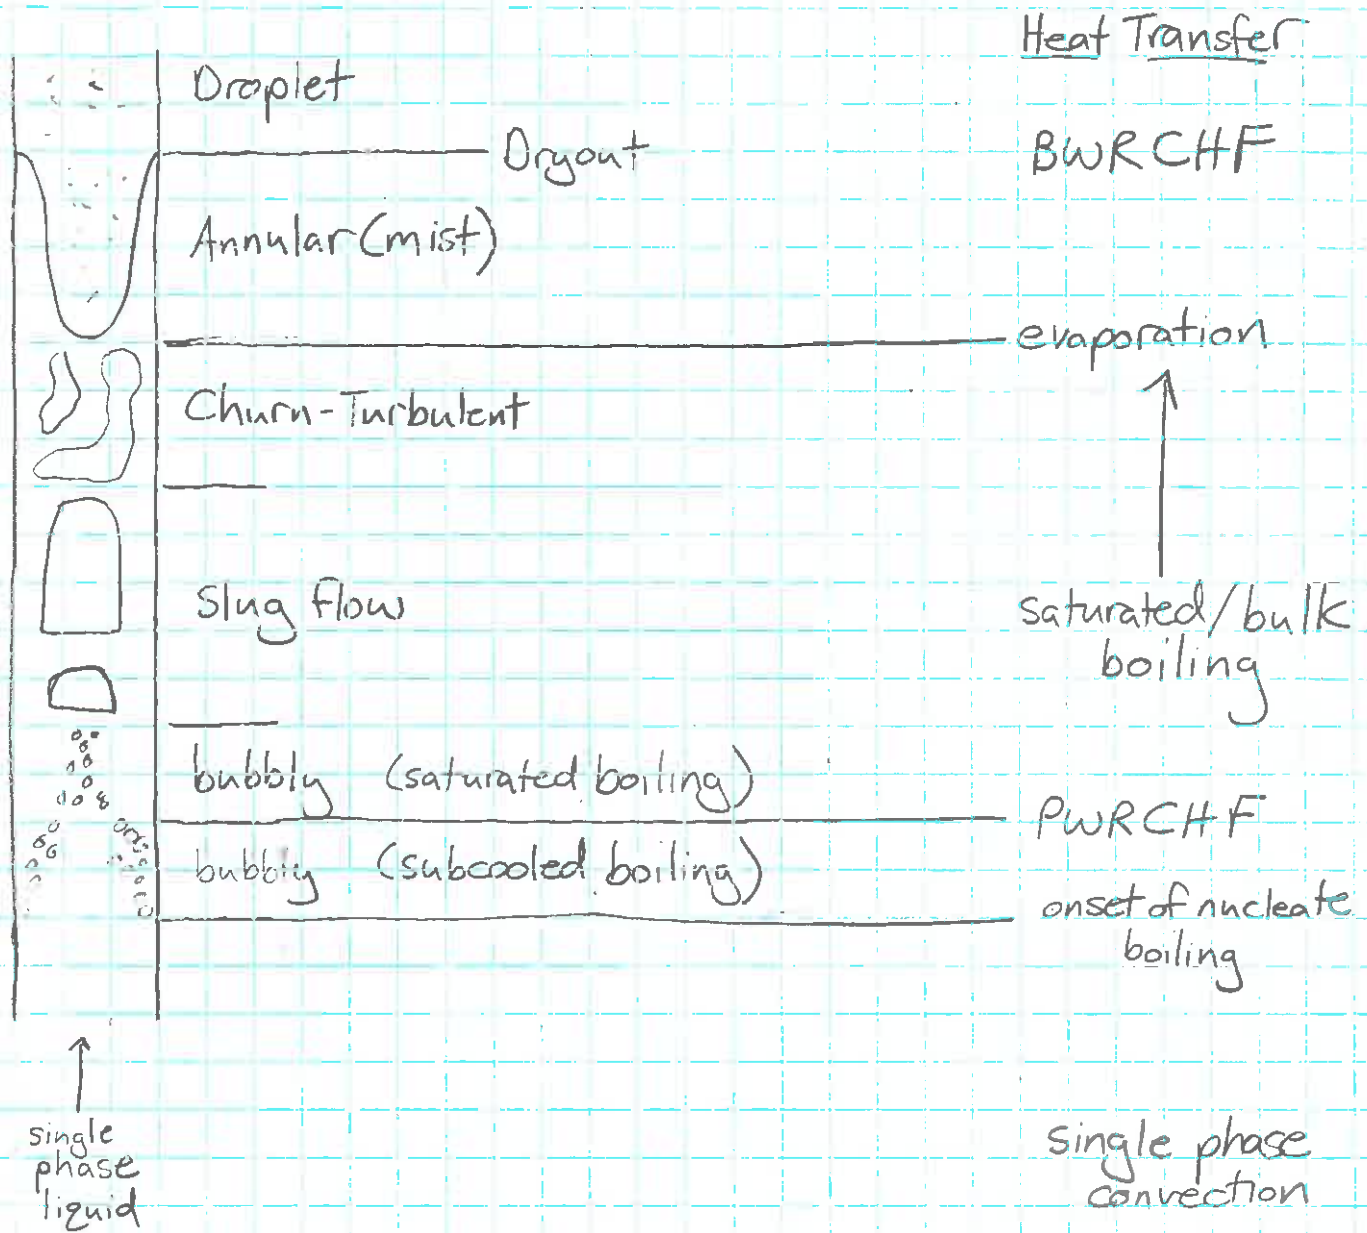 Heat Transfer
Droplet
Dryout
BWR CHF
Annular (mist)
evaporation
Churn-Turbulent
Slug flow
saturated/bulk
boiling
bubbly (saturated boiling)
PWR CHF
bubbly (subcooled boiling)
onset of nucleate
boiling
single
phase
liquid
single phase
convection